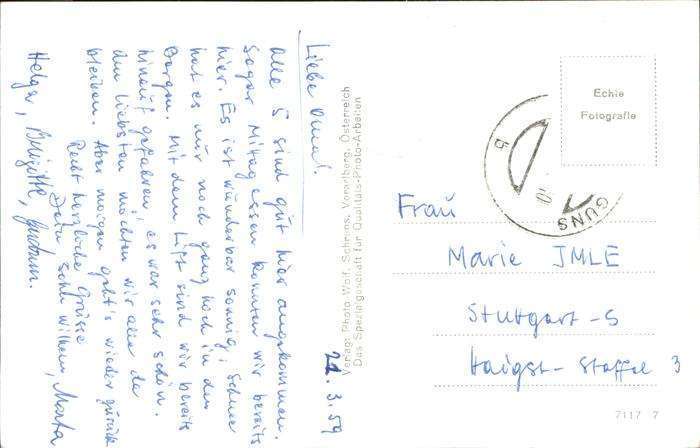 21.3.59
Liebe Oma!
alle 5 sind gut hier angekommen.
Sogar Mitagessen konnten wir bereits
hier. Es ist wunderbar sonnig, Schnee
hat es nur noch ganz hoch in den
Bergen. Mit dem Lift sind wir bereits
hinauf gefahren, es war sehr schön.
Am liebsten möchten wir alle da
bleiben. Aber morgen geht's wieder zurück
Recht herzliche Grüsse
Dein Sohn Wilhelm, Marta
Helga, Brigitte, Gudrun.
Verlag: Photo Wolf, Schruns, Vorarlberg, Österreich
Das Spezialgeschäft für Qualitäts-Photo-Arbeiten
Echte
Fotografie
b
UNS
Frau
Marie IMLE
Stuttgart-S
Haigst-Staffel 3
7117 7